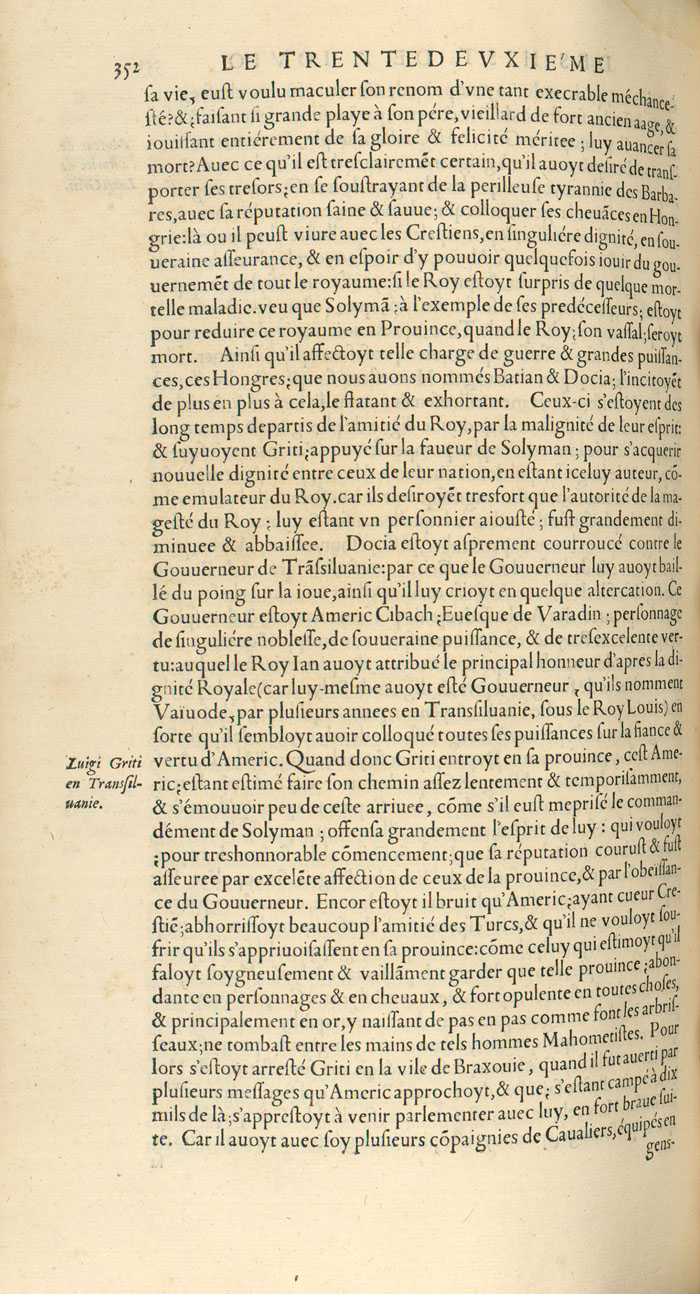 352 LE TRENTEDEVXIE'ME
sa vie, eust voulu maculer son renom d'vne tant execrable méchance-
sté?&;faisant si grande playe à son pére, vieillard de fort ancien aage,&
iouissant entiérement de sa gloire & felicité méritee ; luy auancer sa
mort? Auec ce qu'il est tresclairemẽt certain, qu'il auoyt desiré de trans-
porter ses tresors;en se soustrayant de la perilleuse tyrannie des Barba-
res, auec sa réputation saine & sauue; & colloquer ses cheuãces en Hon-
grie:là ou il peust viure auec les Crestiens, en singuliére dignité, en sou-
ueraine asseurance, & en espoir d'y pouuoir quelquefois iouir du gou-
uernemẽt de tout le royaume:si le Roy estoyt surpris de quelque mor-
telle maladie.veu que Solymã ;à l'exemple de ses predécesseurs; estoyt
pour reduire ce royaume en Prouince, quand le Roy;son vassal;seroyt
mort. Ainsi qu'il affectoyt telle charge de guerre & grandes puissan-
ces, ces Hongres;que nous auons nommés Batian & Docia; l'incitoyẽt
de plus en plus à cela, le flatant & exhortant. Ceux-ci s'estoyent des
long temps departis de l'amitié du Roy, par la malignité de leur esprit:
& suyuoyent Griti;appuyé sur la faueur de Solyman ; pour s'acquerir
nouuelle dignité entre ceux de leur nation, en estant iceluy auteur, cõ-
me emulateur du Roy.car ils desiroyẽt tresfort que l'autorité de la ma-
gesté du Roy ; luy estant vn personnier aiousté ; fust grandement di-
minuee & abbaissee. Docia estoyt asprement courroucé contre le
Gouuerneur de Trãssiluanie:par ce que le Gouuerneur luy auoyt bail-
lé du poing sur la ioue, ainsi qu'il luy crioyt en quelque altercation. Ce
Gouuerneur estoyt Americ Cibach ;Euesque de Varadin ; personnage
de singuliére noblesse, de souueraine puissance, & de tresexcelente ver-
tu:auquel le Roy Ian auoyt attribué le principal honneur d'apres la di-
gnité Royale(car luy-mesme auoyt esté Gouuerneur , qu'ils nomment
Vaïuode, par plusieurs annees en Transsiluanie, sous le Roy Louis) en
sorte qu'il sembloyt auoir colloqué toutes ses puissances sur la fiance &
Luigi Griti
en Transsil-
uanie.
vertu d'Americ. Quand donc Griti entroyt en sa prouince, cest Ame-
ric;estant estimé faire son chemin assez lentement & temporisamment,
& s'émouuoir peu de ceste arriuee, cõme s'il eust meprisé le comman-
dément de Solyman ; offensa grandement l'esprit de luy : qui vouloyt
;pour treshonnorable cõmencement;que sa réputation courust & fust
asseuree par excelẽte affection de ceux de la prouince,& par l'obeissan-
ce du Gouuerneur. Encor estoyt il bruit qu'Americ;ayant cueur Cre-
stiẽ;abhorrissoyt beaucoup l'amitié des Turcs,& qu'il ne vouloyt sou-
frir qu'ils s'appriuoisassent en sa prouince:cõme celuy qui estimoyt qu'il
faloyt soygneusement & vaillãment garder que telle prouince ;abon-
dante en personnages & en cheuaux, & fort opulente en toutes choses,
& principalement en or, y naissant de pas en pas comme font les arbris-
seaux;ne tombast entre les mains de tels hommes Mahometistes. Pour
lors s'estoyt arresté Griti en la vile de Braxouie, quand il fut auerti par
plusieurs messages qu'Americ approchoyt,& que; s'estant campé à dix
mils de là;s'apprestoyt à venir parlementer auec luy, en fort braue sui-
te. Car il auoyt auec soy plusieurs cõpaignies de Caualiers, équipés en
gens-